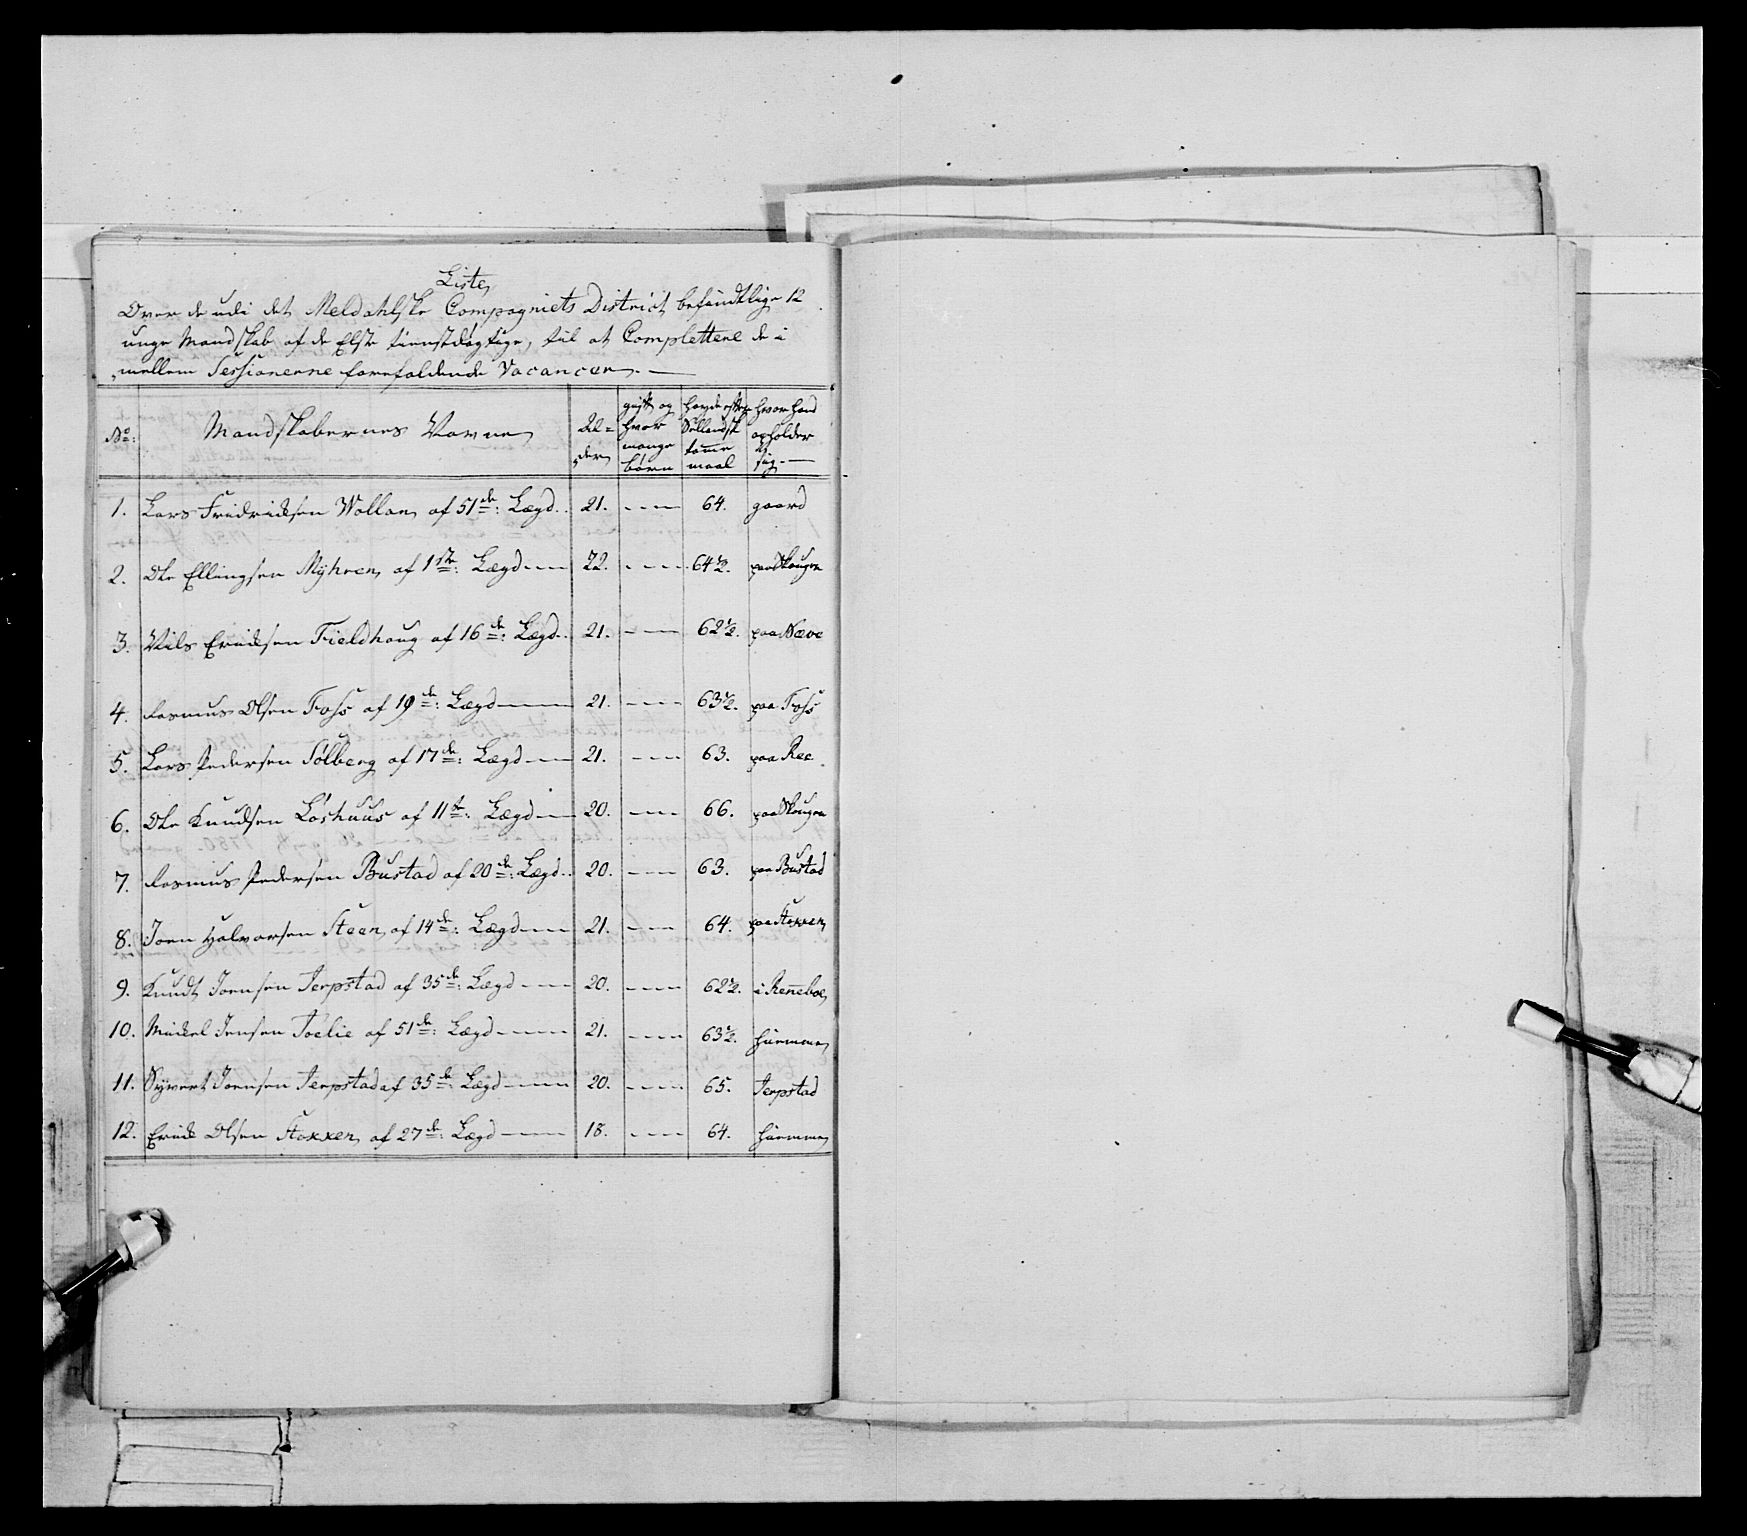 Liste
Over de udi det Meldahlske Compagniets District befindtlige 12
unge Mandskab af de Elste tienstdögtige, til at Complettere de i
mellem Sessionerne forefaldende Vacancer.
No: Mandskabernes Navne Al=der gift og hvor mange börn höyde efter Sellandsk tomme maal hvor hand opholder sig
1. Lars Fridriksen Wollan af 51de: Lægd 21. ---- 64. gaard
2. Ole Ellingsen Myhren af 1ste: Lægd 22. ---- 64½. paa Skougen
3. Nils Erichsen Fieldhoug af 16de: Lægd 21. ---- 62½. paa Næve
4. Rasmus Olsen Foss af 19de: Lægd 21. ---- 63½. paa Foss
5. Lars Pedersen Solberg af 17de: Lægd 21. ---- 63. paa Ree
6. Ole Knudsen Löshuus af 11te: Lægd 20. ---- 66. paa Skougen
7. Rasmus Pedersen Bustad af 20de: Lægd 20. ---- 63. paa Bustad
8. Joen Halvorsen Steen af 14de: Lægd 21. ---- 64. paa Stokken
9. Knudt Joensen Jerpstad af 35de: Lægd 20. ---- 62½. i Renneboe
10. Mickel Jensen Toelie af 51de: Lægd 21. ---- 63½. hiemme
11. Syvert Joensen Jerpstad af 35de: Lægd 20. ---- 65. Jerpstad
12. Erick Olsen Stokken af 27de: Lægd 18. ---- 64. hiemme